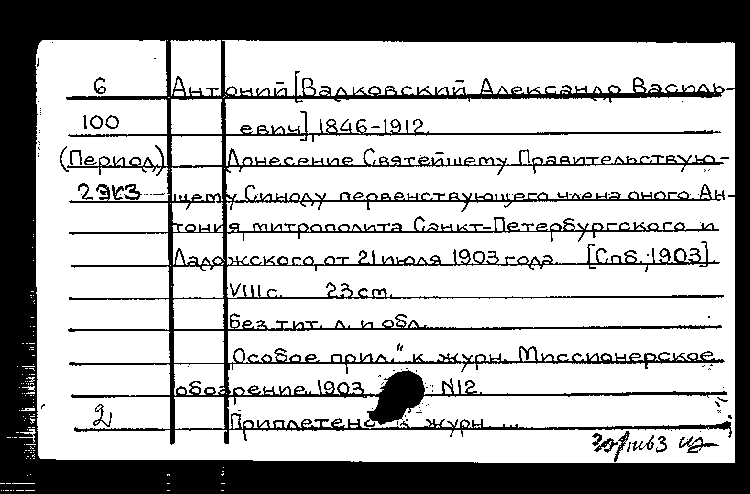 6 Антоний [Вадковский, Александр Василь-
100 евич], 1846-1912.
(Период.) Донесение Святейшему Правительствую-
2 экз щему Синоду первенствующего члена оного Ан-
тония, митрополита Санкт-Петербургского и
Ладожского, от 21 июля 1903 года. [Спб., 1903].
VIII с. 23 cm.
Без тит. л. и обл.
"Особое прил." к журн. Миссионерское
обозрение. 1903 N12.
2 Приплетено к журн. ...